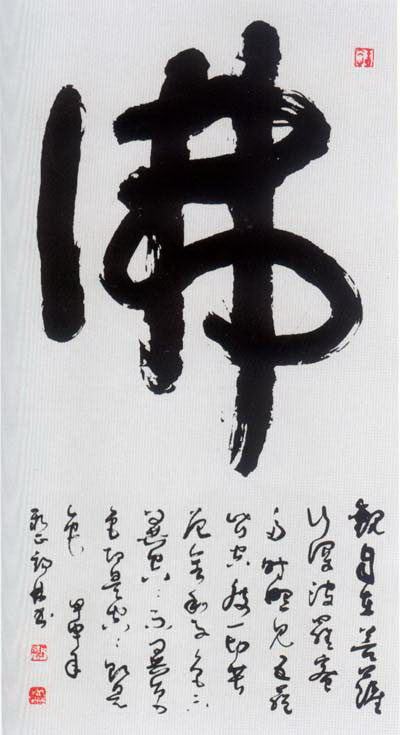 佛
觀自在菩薩
行深波羅蜜
多時照見五蘊
皆空度一切苦
厄舍利子色不
異空〻不異色
色即是空〻即是
色 甲申年